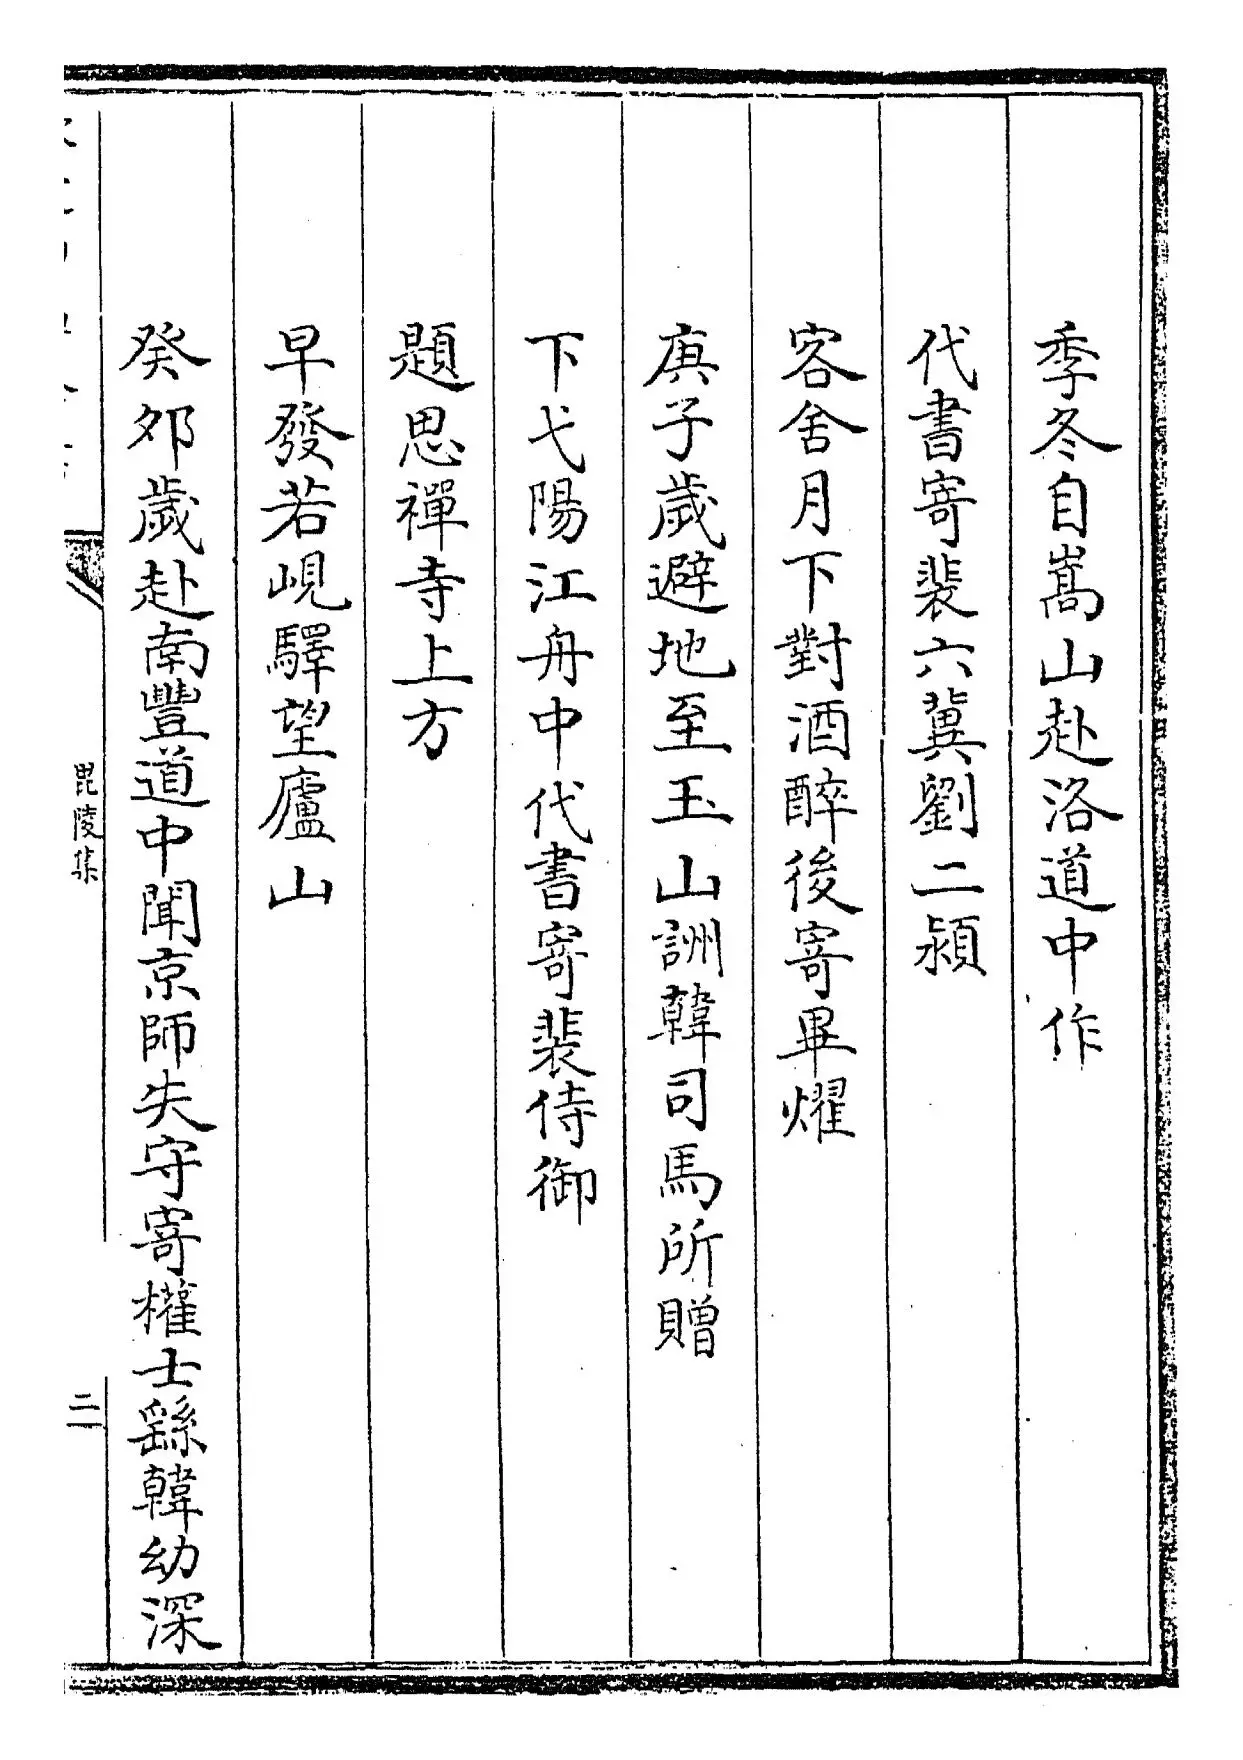 季冬自嵩山赴洛道中作
代書寄裴六冀劉二潁
客舍月下對酒醉後寄畢燿
庚子歲避地至玉山詶韓司馬所贈
下弋陽江舟中代書寄裴侍御
題思禪寺上方
早發若峴驛望廬山
癸夘歲赴南豐道中聞京師失守寄權士繇韓幼深
毘陵集
三